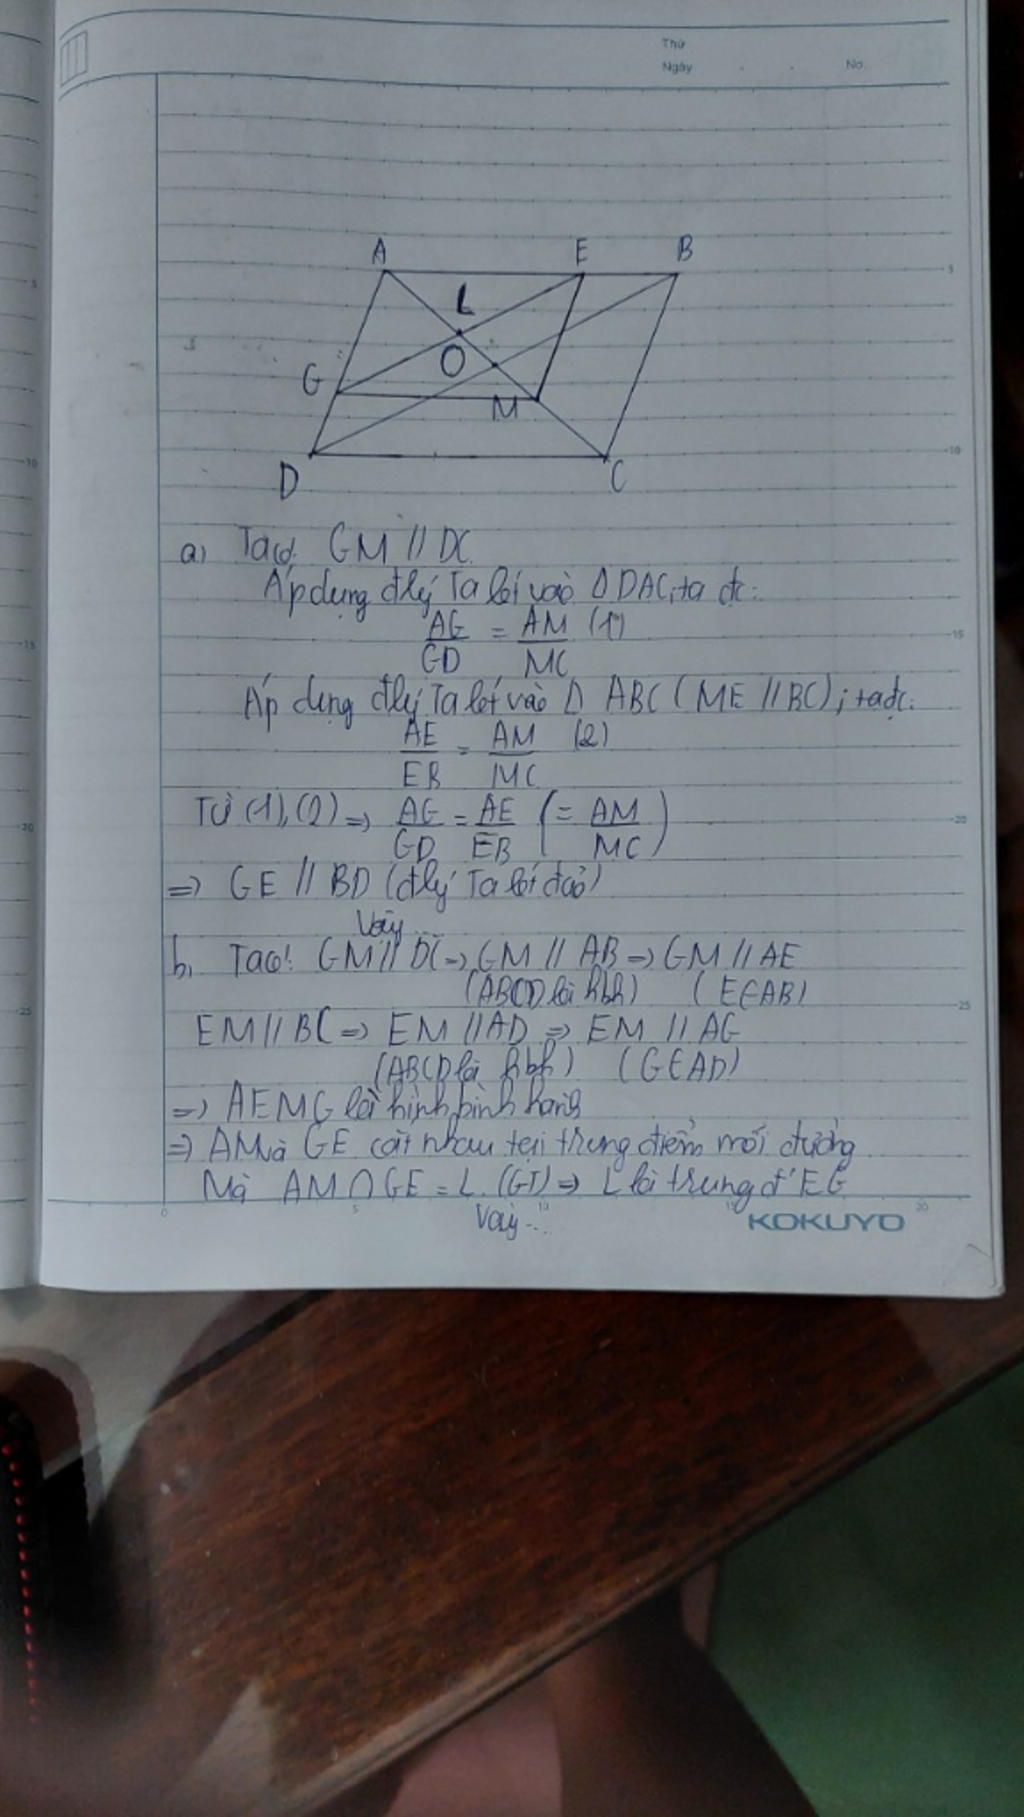 Thứ
Ngày No.
A E B
L
O
G M
D C
a) Ta có: GM // DC
Áp dụng đlý Ta lét vào Δ DAC, ta đc:
AG/GD = AM/MC (1)
Áp dụng đlý Ta lét vào Δ ABC (ME // BC), ta đc:
AE/EB = AM/MC (2)
Từ (1), (2) => AG/GD = AE/EB (= AM/MC)
=> GE // BD (đlý Ta lét đảo)
Vậy...
b, Ta có: GM // DC => GM // AB => GM // AE
(ABCD là hbh) (E∈AB)
EM // BC => EM // AD => EM // AG
(ABCD là hbh) (G∈AD)
=> AEMG là hình bình hành
=> AM và GE cắt nhau tại trung điểm mỗi đường
Mà AM ∩ GE = L (GT) => L là trung đ' EG
Vậy...
KOKUYO